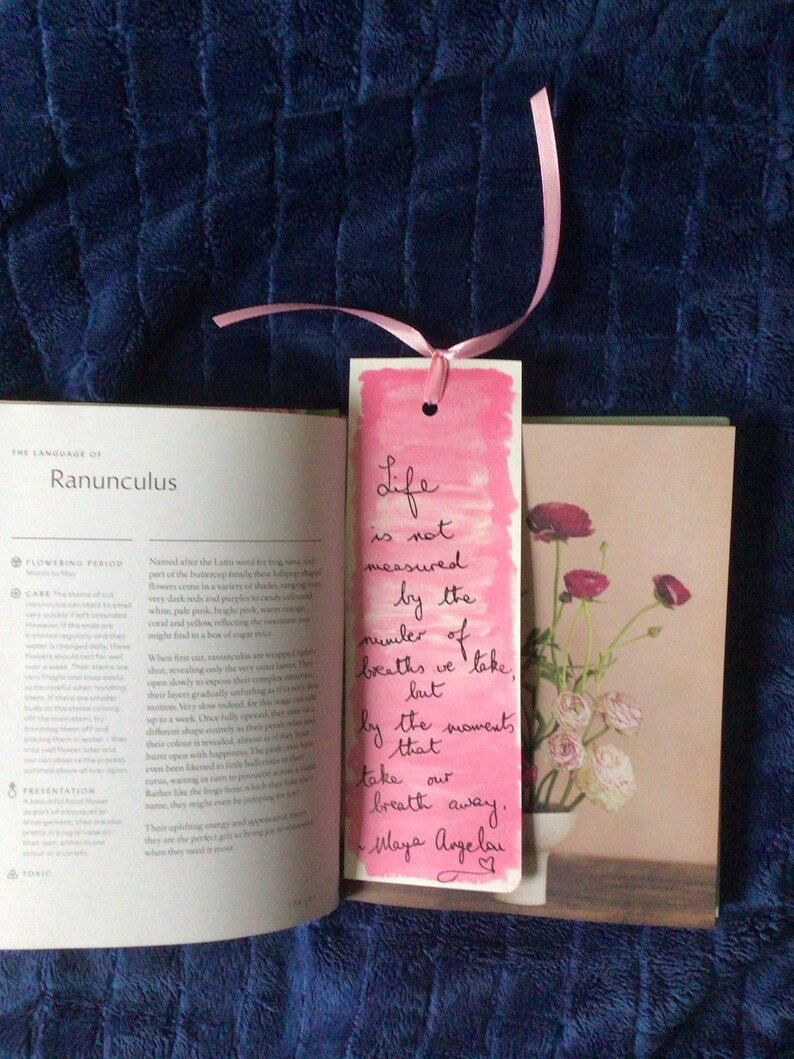 THE LANGUAGE OF
Ranunculus
FLOWERING PERIOD
March to May
CARE The stems of cut
ranunculus can start to smell
very quickly if left untended.
However, if the ends are
trimmed regularly and their
water is changed daily, these
flowers should last for well
over a week. Their stems are
very fragile and snap easily,
so be careful when handling
them. If there are smaller
buds on the stems coming
off the main stem, try
trimming them off and
placing them in water – they
may well flower later and
you can observe the process
outlined above all over again.
PRESENTATION
A beautiful focal flower
as part of a bouquet or
arrangement, they are also
pretty in a jug or vase on
their own, either in one
colour or a variety.
TOXIC
Named after the Latin word for frog, rana, and
part of the buttercup family, these lollipop-shaped
flowers come in a variety of shades, ranging from
very dark reds and purples to candy-coloured
white, pale pink, bright pink, warm orange,
coral and yellow, reflecting the sweetness you
might find in a box of sugar mice.
When first cut, ranunculus are wrapped tightly
shut, revealing only the very outer layers. They
open slowly to expose their complex structure,
their layers gradually unfurling as if in very slow
motion. Very slow indeed, for this stage can take
up to a week. Once fully opened, they take on a
different shape entirely as their petals relax and
their colour is revealed, almost as if they have
burst open with happiness. The pink ones have
even been likened to little ballerinas in their
tutus, waiting in turn to pirouette across a stage.
Rather like the frogs from which they take their
name, they might even be jumping for joy!
Their uplifting energy and appearance mean
they are the perfect gift to bring joy to someone
when they need it most.
Life
is not
measured
by the
number of
breaths we take,
but
by the moments
that
take our
breath away.
~ Maya Angelou